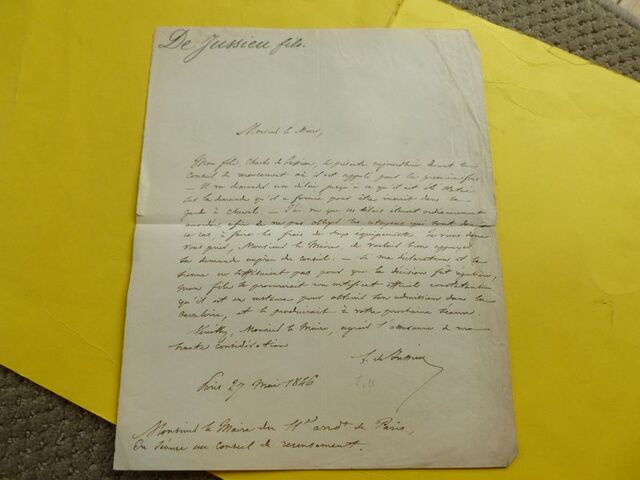 De Jussieu fils.
Monsieur le Maire,
Mon fils, Charles de Jussieu, se présente aujourd'hui devant le
Conseil de recensement où il est appelé pour la première fois
— Il va demander un délai jusqu'à ce qu'il ait été statué
sur la demande qu'il a formée pour être inscrit dans la
garde à cheval. — J'ai vu que ces délais étaient ordinairement
accordés, afin de ne pas obliger les citoyens qui sont dans
ce cas, à faire les frais de deux équipements. Je viens donc
vous prier, Monsieur le Maire, de vouloir bien appuyer
sa demande auprès du conseil. — Si ma déclaration et la
sienne ne suffisaient pas pour que la décision fût
mon fils se procurerait un certificat officiel constatant
qu'il est en instance pour obtenir son admission dans la
cavalerie, et le produirait à votre prochaine séance
Veuillez, Monsieur le Maire, agréer l'assurance de ma
haute considération
de Jussieu
Paris 27 Mai 1846
Monsieur le Maire du 11e arrdt de Paris,
En séance au Conseil de recensement.